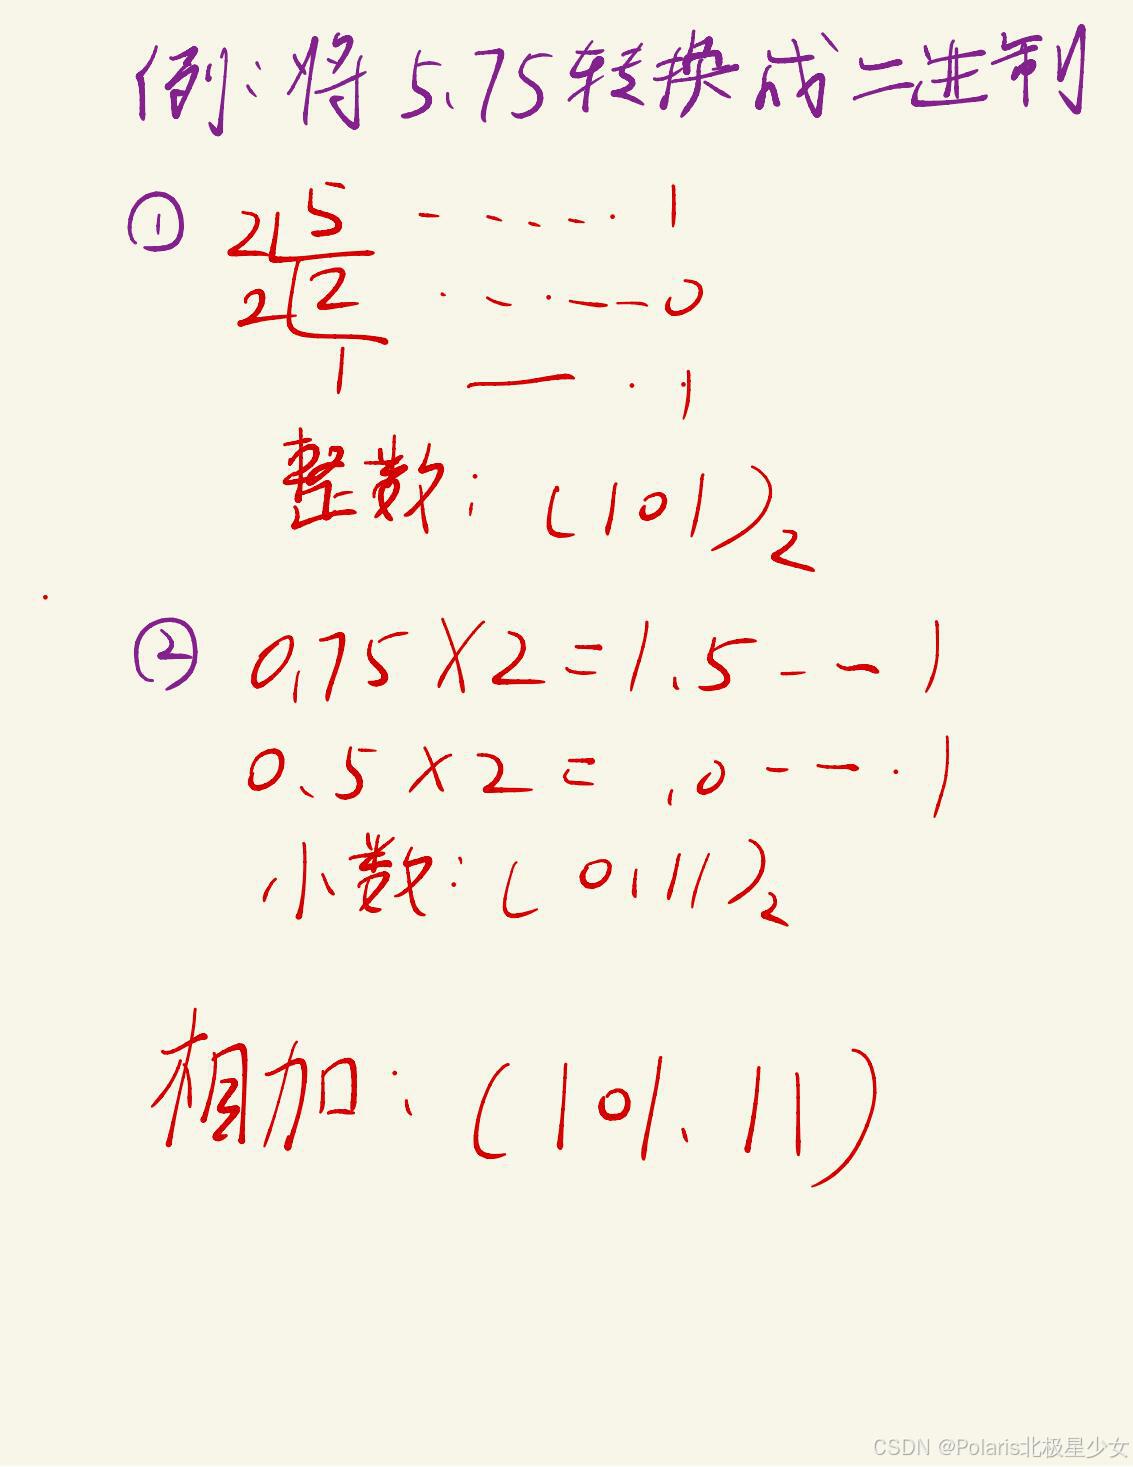 例:将 5.75转换成二进制
① 2 5 ······ 1
2 2 ······ 0
1 —··1
整数:(101)₂
② 0.75×2=1.5---1
0.5×2= .0---·1
小数:(0.11)₂
相加:(101.11)
CSDN @Polaris北极星少女